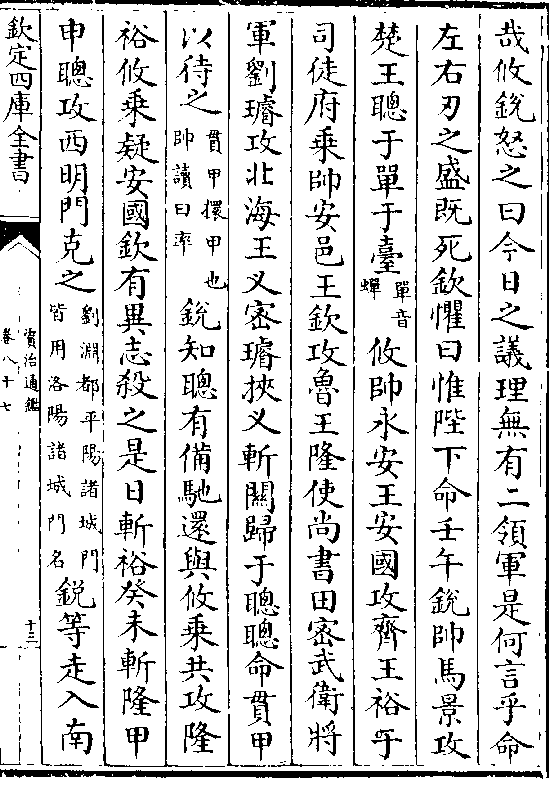 哉攸銳怒之曰今日之議理無有二領軍是何言乎命
左右刃之盛既死欽懼曰惟陛下命壬午銳帥馬景攻
楚王聰于單于臺單音蟬攸帥永安王安國攻齊王裕于
司徒府乘帥安邑王欽攻魯王隆使尚書田密武衛將
軍劉璿攻北海王乂密璿挾乂斬關歸于聰聰命貫甲
以待之貫甲擐甲也帥讀曰率銳知聰有備馳還與攸乘共攻隆
裕攸乘疑安國欽有異志殺之是日斬裕癸未斬隆甲
申聰攻西明門克之劉淵都平陽諸城門皆用洛陽諸城門名銳等走入南
欽定四庫全書
資治通鑑
卷八十七
十三